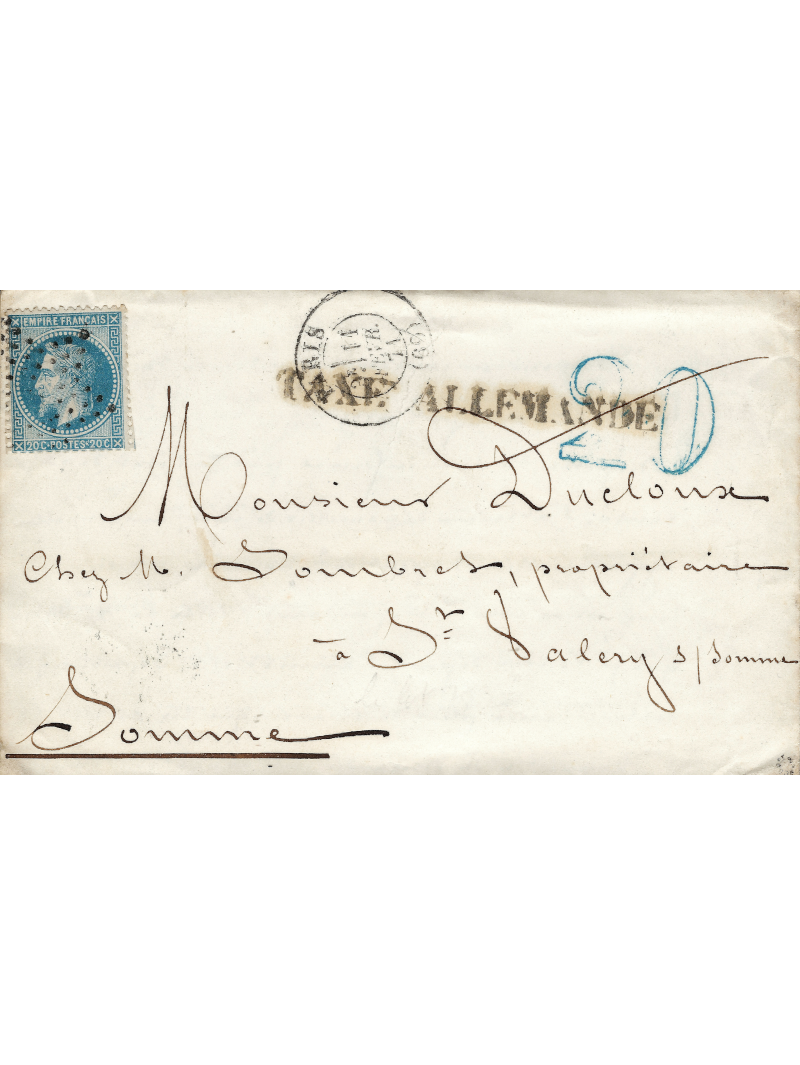 EMPIRE FRANÇAIS
20 C. POSTES 20 C.
PARIS (60)
FEVR.
71
TAXE ALLEMANDE
20
Monsieur Ducloux
Chez M. Sombret, propriétaire
à St Valery s/Somme
Somme